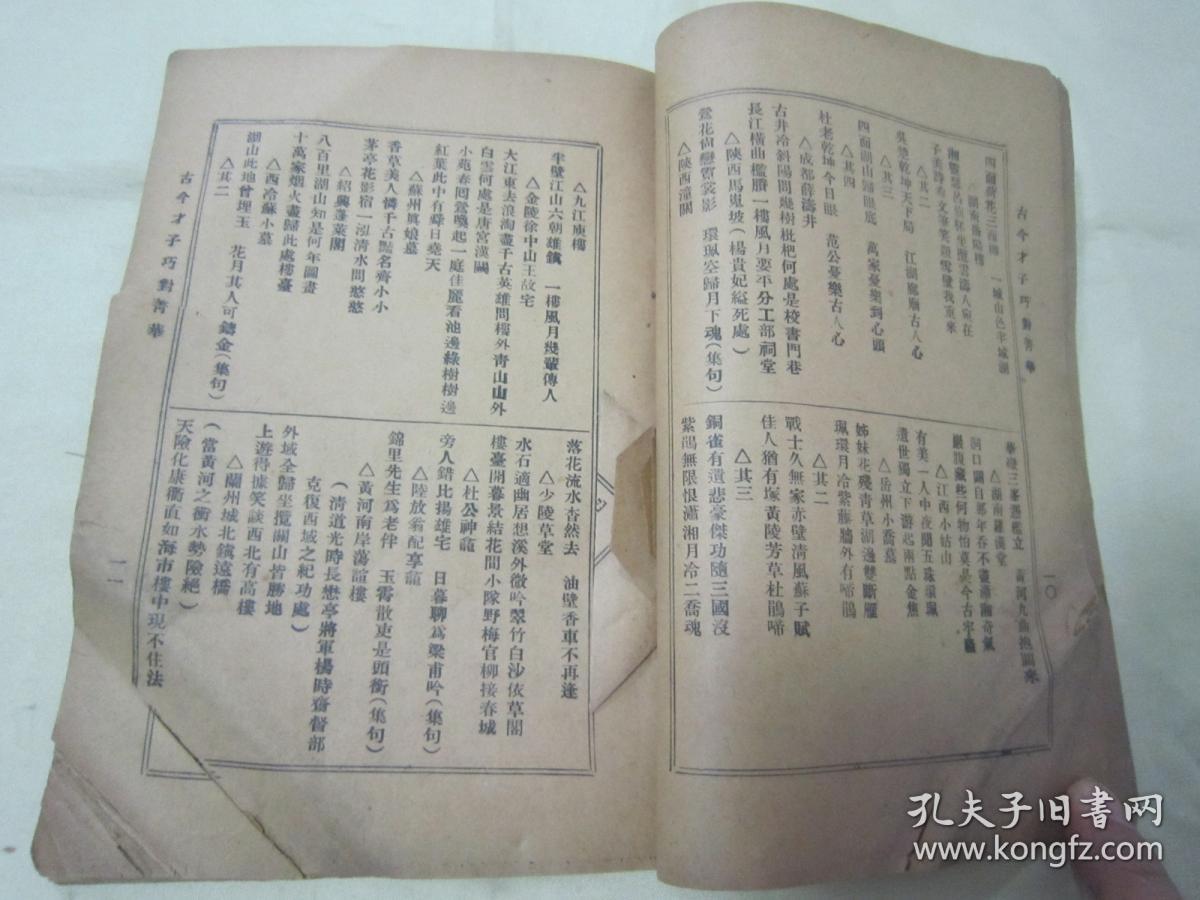 古今才子巧對菁華
一〇
四面荷花三面柳 一城山色半城湖
△湖南岳陽樓
△其二
吳楚乾坤天下局 江湖廊廟古人心
△其三
四面湖山歸眼底 萬家憂樂到心頭
△其四
杜老乾坤今日眼 范公憂樂古人心
△成都薛濤井
古井冷斜陽問幾樹枇杷何處是校書門巷
長江橫曲檻賸一樓風月要平分工部祠堂
△陝西馬嵬坡(楊貴妃縊死處)
鶯花尙戀霓裳影 環珮空歸月下魂(集句)
△陝西潼關
華嶽三峯憑檻立 黃河九曲抱關來
△湖南羅漢堂
洞口開自那年吞不盡瀟湘奇氣
巖腹藏些何物怕莫是今古牢騷
△江西小姑山
有美一人中夜聞五珠環珮
遺世獨立下游起兩點金焦
△岳州小喬墓
姊妹花殘青草湖邊雙斷雁
珮環月冷紫藤牆外有啼鵑
△其二
戰士久無家赤壁淸風蘇子賦
佳人猶有塚黃陵芳草杜鵑啼
△其三
銅雀有遺悲豪傑功隨三國沒
紫鴻無限恨瀟湘月冷二喬魂
△九江庾樓
半壁江山六朝雄鎭 一樓風月幾輩傳人
△金陵徐中山王故宅
大江東去浪淘盡千古英雄問樓外靑山山外
白雲何處是唐宮漢闕
小苑春囘鶯喚起一庭佳麗看池邊綠樹樹邊
紅葉此中有舜日堯天
△蘇州眞娘墓
香草美人憐千古豔名齊小小
茅亭花影宿一泓清水問愁愁
△紹興蓬萊閣
八百里湖山知是何年圖畫
十萬家烟火盡歸此處樓臺
△西冷蘇小墓
湖山此地曾埋玉 花月其人可鑄金(集句)
△其二
古今才子巧對菁華
一一
落花流水杳然去 油壁香車不再逢
△少陵草堂
水石適幽居想溪外微吟翠竹白沙依草閣
樓臺開暮景結花間小隊野梅官柳接春城
△杜公神龕
旁人錯比揚雄宅 日暮聊爲梁甫吟(集句)
△陸放翁配享龕
錦里先生爲老伴 玉霄散吏是頭銜(集句)
△黃河南岸蕩諠樓
(清道光時長懋亭將軍楊時齋督部
克復西域之紀功處)
外域全歸坐攬關山皆勝地
上遊得據笑談西北有高樓
△蘭州城北鎭遠橋
(當黃河之衝水勢險絕)
天險化康衢直如海市樓中現不住法
孔夫子旧書网
www.kongfz.com